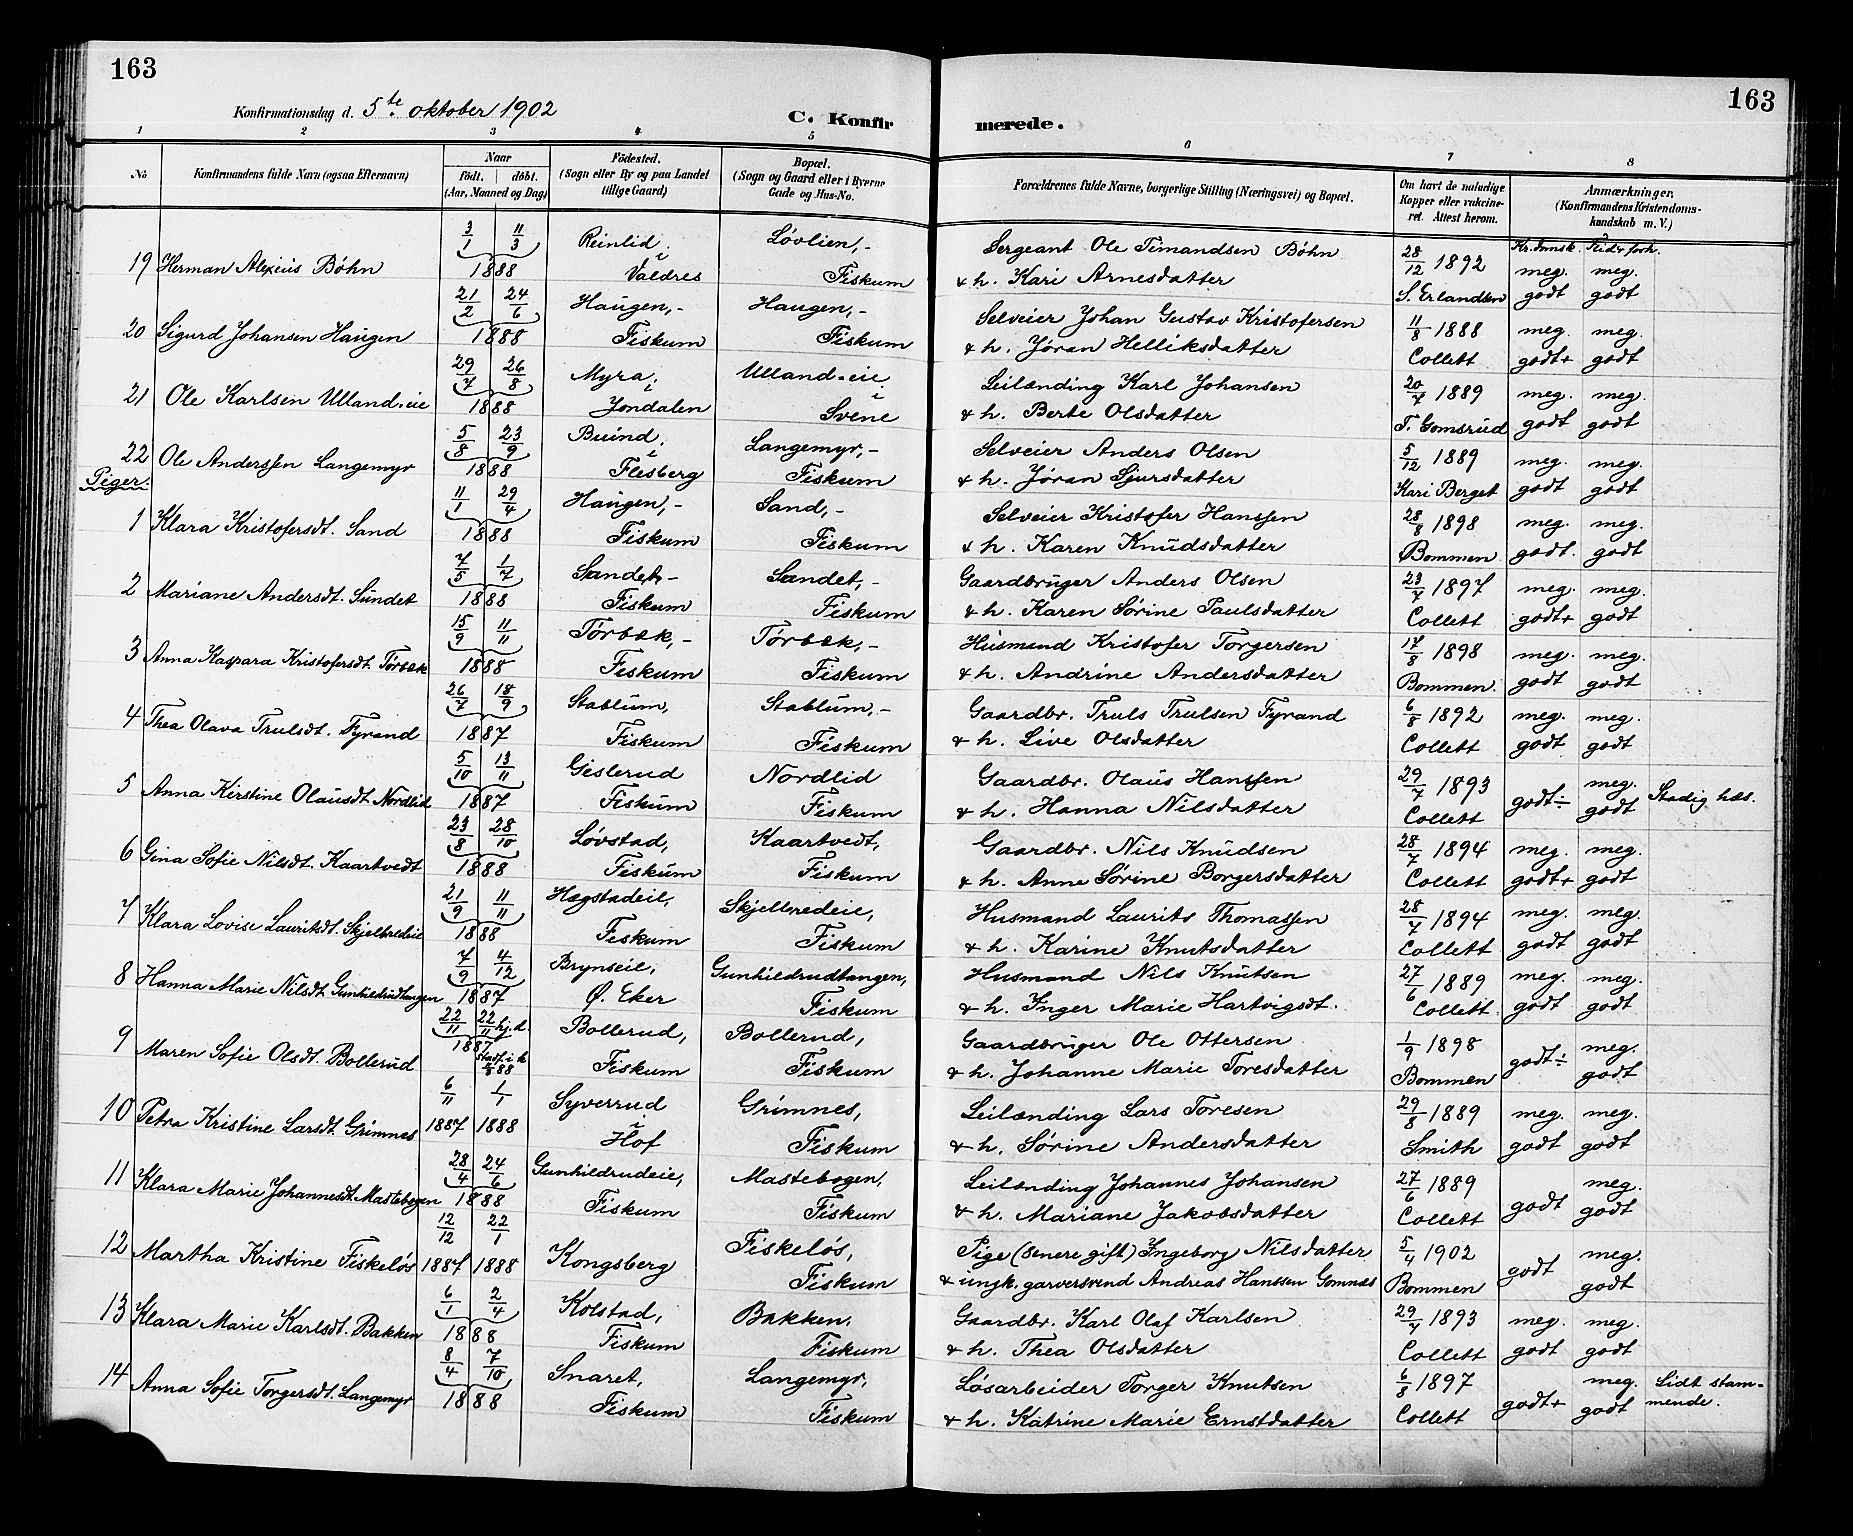 163
163
Konfirmationsdag d. 5te oktober 1902
C. Konfir merede.
1 2 3 4 5 6 7 8
No
Konfirmandens fulde Navn (ogsaa Efternavn)
Naar
födt. döbt.
(Aar, Maaned og Dag)
Födested.
(Sogn eller By og paa Landet
tillige Gaard)
Bopæl.
(Sogn og Gaard eller i Byerne
Gade og Hus-No.
Forældrenes fulde Navne, borgerlige Stilling (Næringsvei) og Bopæl.
Om havt de naturlige
Kopper eller vakcine-
ret. Attest herom.
Anmærkninger.
(Konfirmandens Kristendoms-
kundskab m. V.)
3/1 11/3 Reinlid, Løvlien,- Sergeant Ole Timandsen Bøhn 28/12 1892 Kr.kunsk. Flid & forh.
19 Herman Alexius Bøhn 1888 i Valdres Fiskum & h. Kari Arnesdatter S. Erlandsen meg. godt meg. godt
21/2 24/6 Haugen,- Haugen,- Selveier Johan Gustav Kristofersen 11/8 1888 meg. meg.
20 Sigurd Johansen Haugen 1888 Fiskum Fiskum & h. Jøran Helliksdatter Collett godt+ godt
29/7 26/8 Myra, Ulland-eie Leilænding Karl Johansen 20/7 1889 meg. meg.
21 Ole Karlsen Ulland-eie 1888 i Jondalen i Svene & h. Berte Olsdatter T. Gomsrud godt godt
5/8 23/9 Buind, Langemyr,- Selveier Anders Olsen 5/12 1889 meg. meg.
22 Ole Anderssen Langemyr 1888 i Flesberg Fiskum & h. Jøran Sjursdatter Kari Berget godt godt
Piger:
11/1 29/4 Haugen,- Sand,- Selveier Kristofer Hanssen 28/8 1898 meg. meg.
1 Klara Kristofersdt. Sand 1888 Fiskum Fiskum & h. Karen Knudsdatter Bommen godt. godt
7/5 1/7 Sandet,- Sandet,- Gaardbruger Anders Olsen 23/7 1897 meg. meg.
2 Mariane Andersdt. Sundet 1888 Fiskum Fiskum & h. Karen Sørine Paulsdatter Collett godt+ godt
15/9 11/11 Tørbæk,- Tørbæk,- Husmand Kristofer Torgersen 17/8 1898 meg. meg.
3 Anna Kaspara Kristofersdt. Tørbæk 1888 Fiskum Fiskum & h. Andrine Andersdatter Bommen. godt godt
26/7 18/9 Stablum, Stablum,- Gaardbr. Truls Trulsen Fyrand 6/8 1892 meg. meg.
4 Thea Olava Trulsdt. Fyrand 1887 Fiskum Fiskum & h. Live Olsdatter Collett godt godt
5/10 13/11 Gislerud Nordlid Gaardbr. Olaus Hanssen 29/7 1893 godt÷ meg. Stadig hæs.
5 Anna Kirstine Olausdt. Nordlid 1887 Fiskum Fiskum & h. Hanna Nilsdatter Collett godt
23/8 28/10 Løvstad, Kaartvedt, Gaardbr. Nils Knudsen 28/7 1894 meg. meg.
6 Gina Sofie Nilsdt. Kaartvedt 1888 Fiskum Fiskum & h. Anne Sørine Borgersdatter Collett godt+ godt
21/9 11/11 Hægstadeie, Skjelbredeie, Husmand Laurits Thomassen 28/7 1894 meg. meg.
7 Klara Lovise Lauritsdt. Skjelbredeie 1888 Fiskum Fiskum & h. Karine Knutsdatter Collett godt godt
7/9 4/12 Brynseie, Gunhildrudtangen, Husmand Nils Knutsen 27/6 1889 meg. meg.
8 Hanna Marie Nilsdt. Gunhildrudtangen 1887 Ø. Eker Fiskum & h. Inger Marie Hartvigsdt. Collett godt godt
22/11 22/11 hj.d. Bollerud, Bollerud, Gaardbruger Ole Ottersen 1/9 1898 godt÷ meg.
9 Maren Sofie Olsdt. Bollerud 1887 stadf. i k. 88 Fiskum Fiskum & h. Johanne Marie Toresdatter Bommen godt
6/11 1/1 Syverrud Grimnes, Leilænding Lars Toresen 29/8 1889 meg. meg.
10 Petra Kristine Larsdt. Grimnes 1887 1888 i Hof Fiskum & h. Sørine Andersdatter Smith godt godt
28/4 24/6 Gunhildrudeie, Mastebogen, Leilænding Johannes Johansen 27/6 1889 godt meg.
11 Klara Marie Johannesdt. Mastebogen 1888 Fiskum Fiskum & h. Mariane Jakobsdatter Collett godt
12/12 22/1 Fiskeløs, Pige (senere gift) Ingeborg Nilsdatter 5/4 1902 godt meg.
12 Martha Kristine Fiskeløs 1887 1888 Kongsberg Fiskum & ungk. garversvend Andreas Hanssen Gomnæs Bommen godt
6/1 2/4 Kolstad, Bakken, Gaardbr. Karl Olaf Karlsen 29/7 1893 meg. meg.
13 Klara Marie Karlsdt. Bakken 1888 Fiskum Fiskum & h. Thea Olsdatter Collett godt godt
8/4 7/10 Snaret, Langemyr, Løsarbeider Torger Knutsen 6/8 1897 godt+ meg. Lidt stam-
14 Anna Sofie Torgersdt. Langemyr 1888 Fiskum Fiskum & h. Katrine Marie Ernstdatter Collett godt mende.